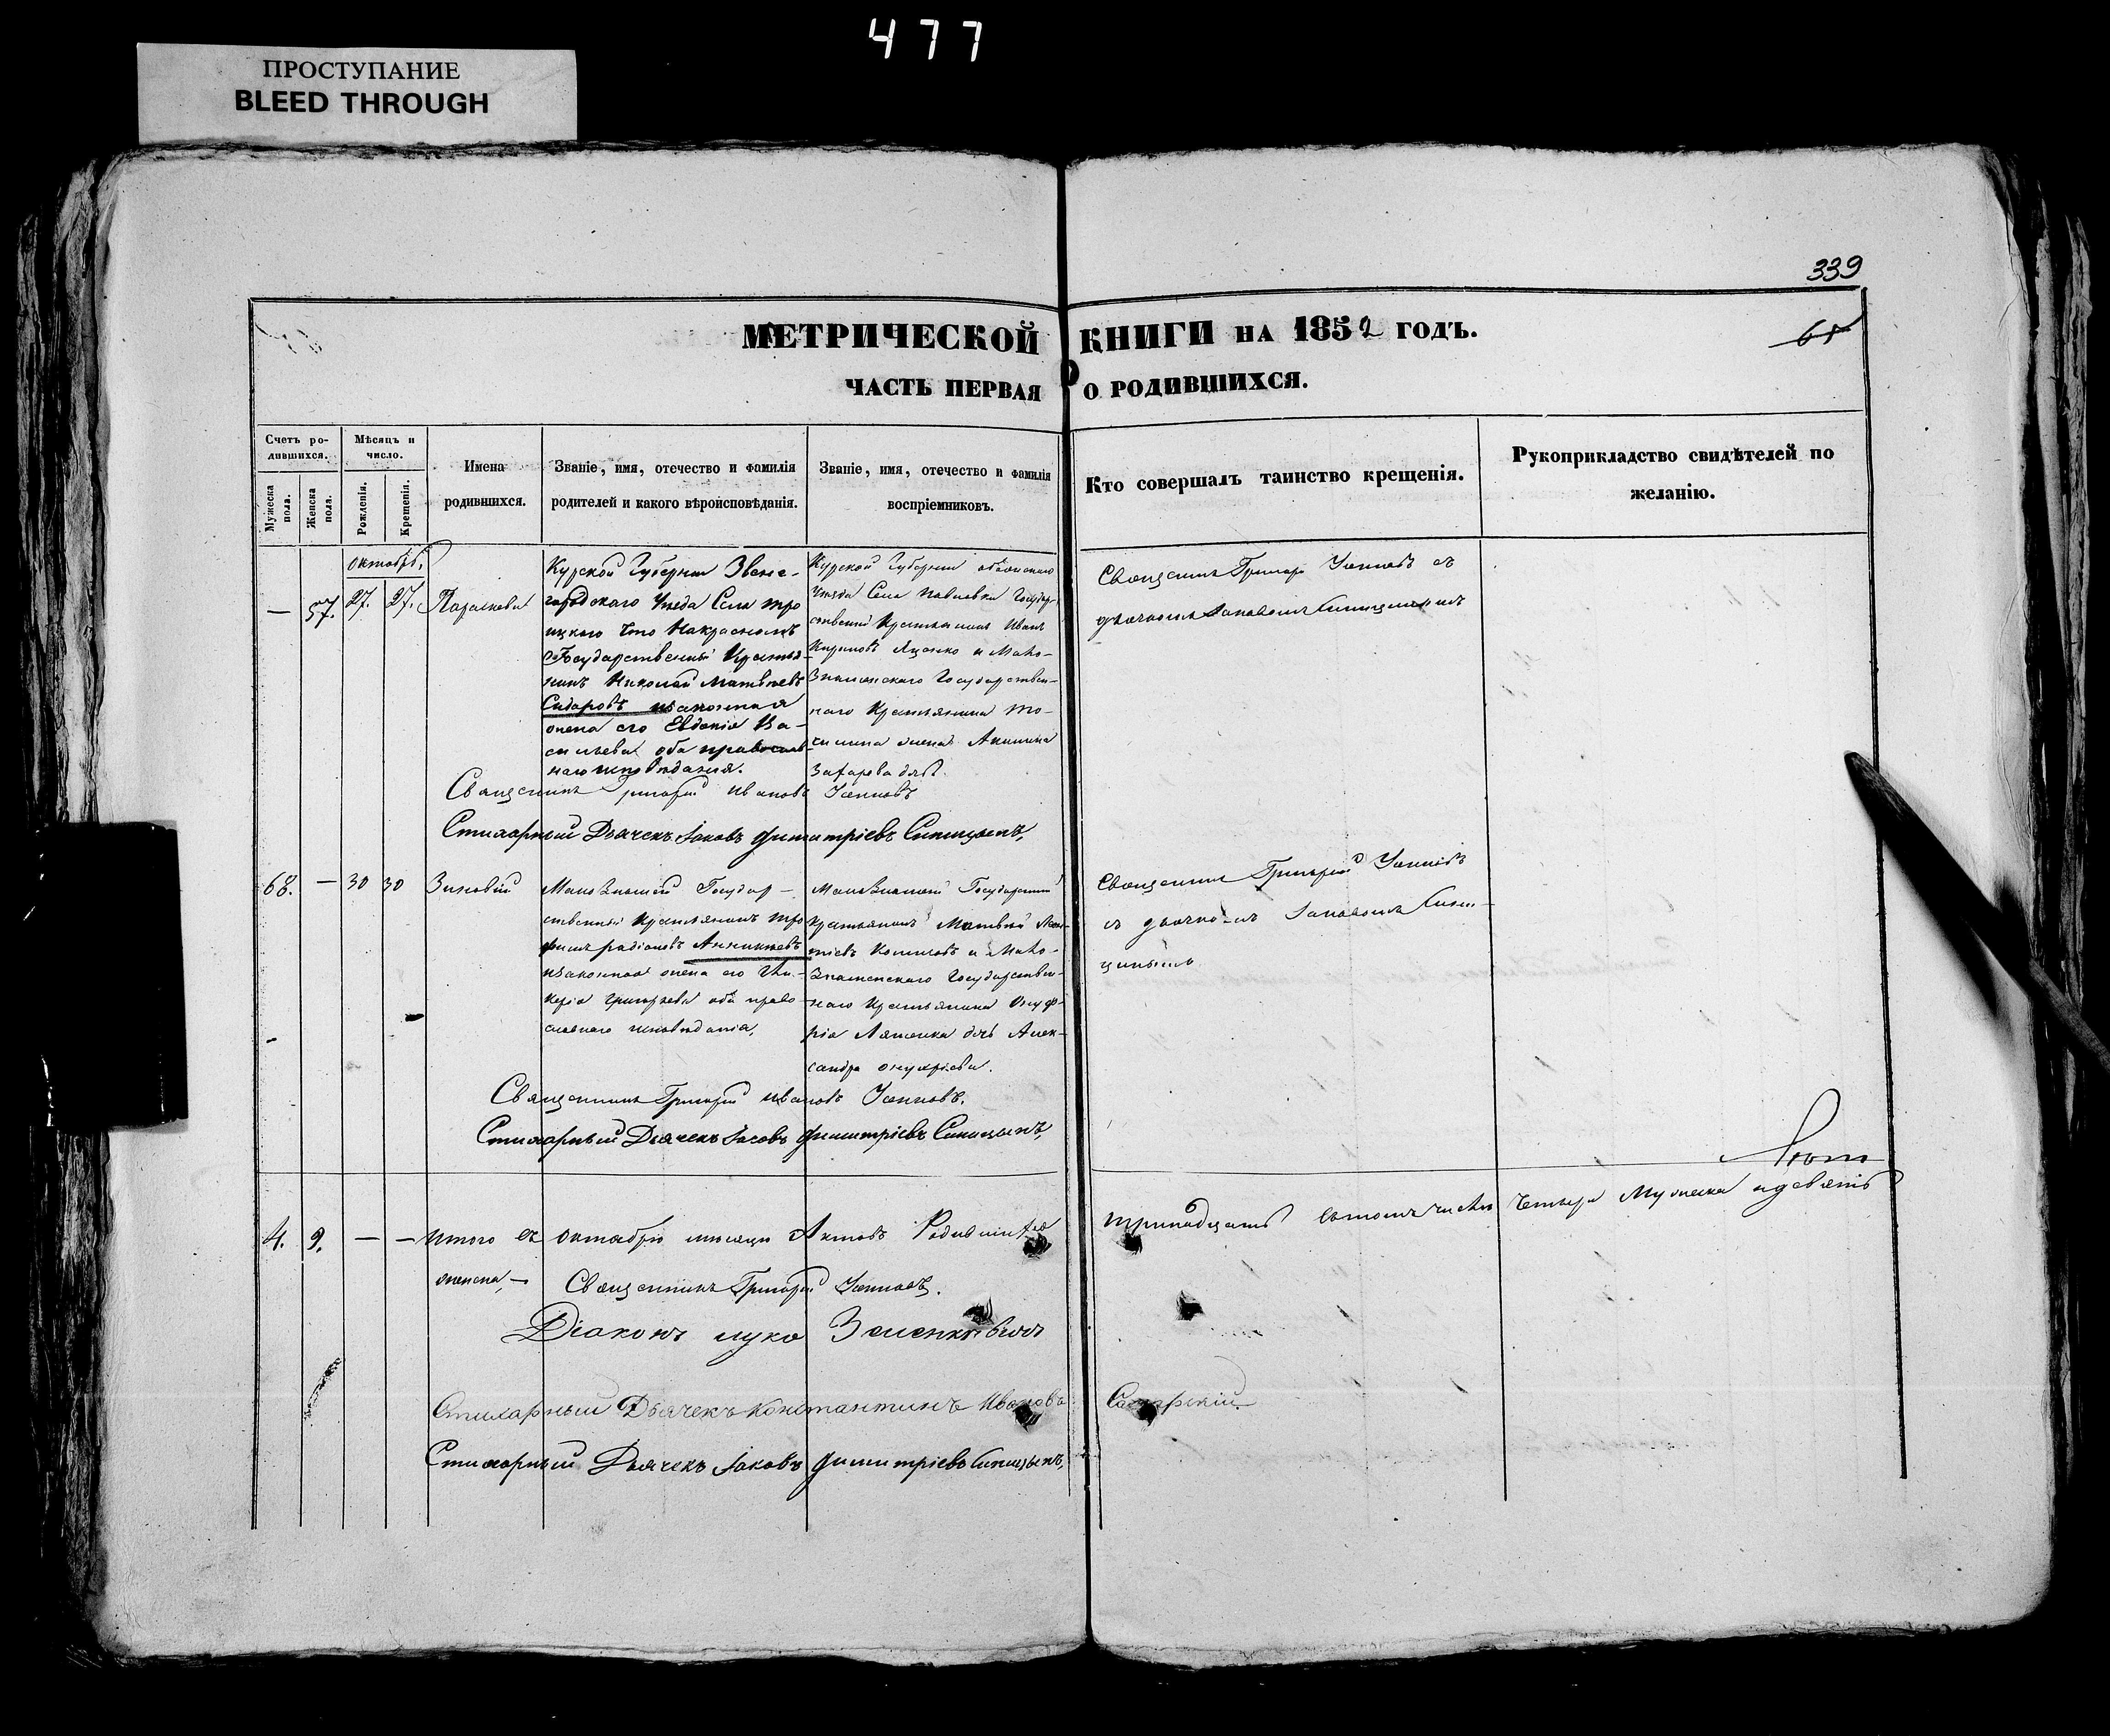 477
ПРОСТУПАНИЕ
BLEED THROUGH
339
МЕТРИЧЕСКОЙ КНИГИ НА 1852 ГОДЪ.
65
ЧАСТЬ ПЕРВАЯ О РОДИВШИХСЯ.
Счетъ ро-
дившихся.
Мужеска пола.
Женска пола.
Мѣсяцъ и
число.
Рожденія.
Крещенія.
Имена
родившихся.
Званіе, имя, отечество и фамилія
родителей и какого вѣроисповѣданія.
Званіе, имя, отечество и фамилія
воспріемниковъ.
Кто совершалъ таинство крещенія.
Рукоприкладство свидѣтелей по
желанію.
октябрь,
— 57. 27. 27. Параскева
Курской Губерніи
Уезда Села Тро
ицкаго что Накрасномъ
Государственный Крестья-
нинъ Николай Матвѣевъ
Сидоровъ изаконная
жена его Евдокія Ва-
сильева оба православ-
наго исповѣданія.
Курской Губерніи обоянскаго
Уезда Села Павловки Государ-
ственный Крестьянинъ Иванъ
Яценко и Мало-
Знаменскаго Государствен-
наго Крестьянина
жена Акилина
Захарова
Священникъ Григорій съ
дьячкомъ Іаковомъ Синицынымъ
Священникъ Григорій Ивановъ
Стихарный Дьячекъ Іаковъ Димитріевъ Синицынъ,
68. — 30 30 Зиновій
Государ-
ственный Крестьянинъ Тро
фимъ радіоновъ Аникѣевъ
изаконная жена его Гли-
керія григорьева оба право-
славнаго исповѣданія,
Государственный
Крестьянинъ Матвѣй
и Мало-
Знаменскаго Государствен-
наго Крестьянина Онуф-
рія дочь Алек-
сандра онуфріева.
Священникъ Григорій
съ дьячкомъ Іаковомъ Сини-
цынымъ
Священникъ Григорій Ивановъ
Стихарный Дьячекъ Іаковъ Димитріевъ Синицынъ,
4. 9. — — Итого въ октябрѣ мѣсяцѣ Актовъ Родившихся тринадцать втомъ числѣ четыре Мужеска идевять
женска, —
Священникъ Григорій
Діаконъ лука
Стихарный Дьячекъ Константинъ Ивановъ
Стихарный Дьячекъ Іаковъ Димитріевъ Синицынъ,